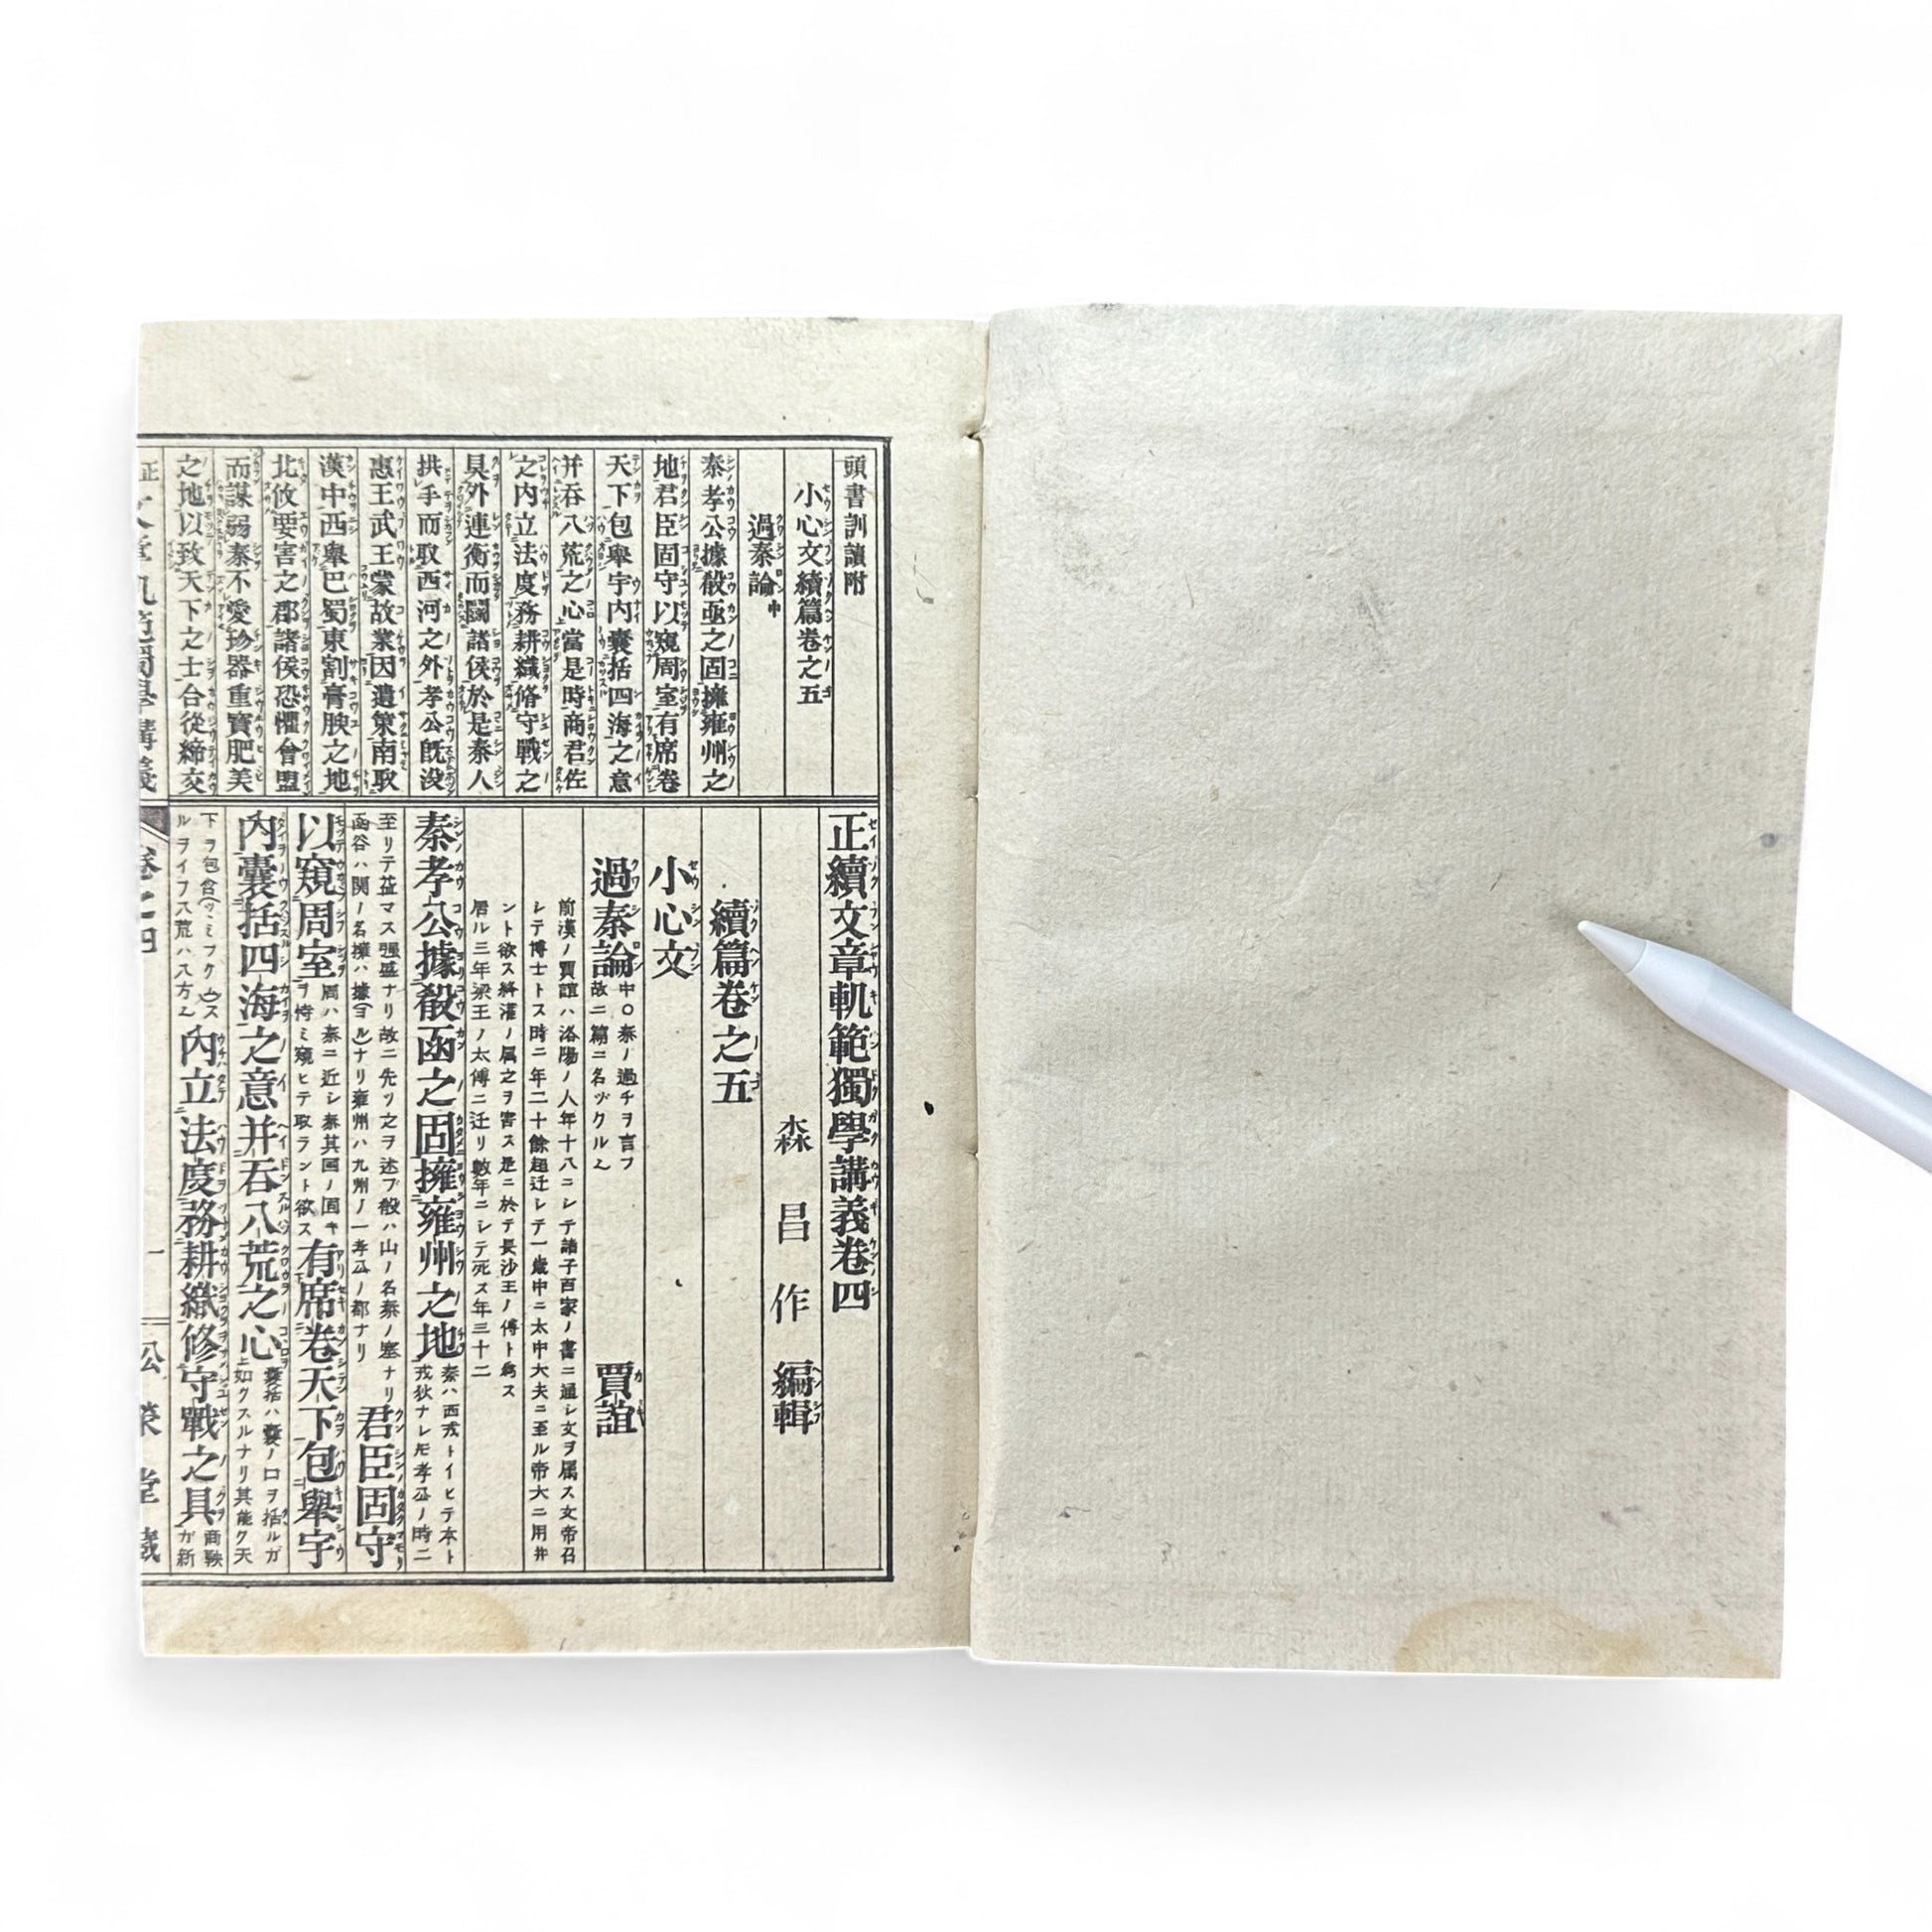 頭書訓讀附
小心文續篇卷之五
過秦論中
秦孝公據殽函之固擁雍州之
地君臣固守以窺周室有席卷
天下包舉宇內囊括四海之意
并吞八荒之心當是時商君佐
之內立法度務耕織脩守戰之
具外連衡而鬭諸侯於是秦人
拱手而取西河之外孝公既沒
惠王武王蒙故業因遺策南取
漢中西舉巴蜀東割膏腴之地
北收要害之郡諸侯恐懼會盟
而謀弱秦不愛珍器重寶肥美
之地以致天下之士合從締交
正續文章軌範獨學講義卷四
森昌作編輯
續篇卷之五
小心文
過秦論中○秦ノ過チヲ言フ故ニ篇ニ名ヅクル也 賈誼
前漢ノ賈誼ハ洛陽ノ人年十八ニシテ諸子百家ノ書ニ通シ文ヲ属ス文帝召
シテ博士トス時ニ年二十餘超迁シテ一歳中ニ太中大夫ニ至ル帝大ニ用井
ント欲ス絳灌ノ属之ヲ害ス是ニ於テ長沙王ノ傅ト爲ス
居ル三年梁王ノ太傅ニ迁リ數年ニシテ死ス年三十二
秦孝公據殽函之固擁雍州之地秦ハ西戎トイヒテ本ト戎狄ナレ𪜈孝公ノ時ニ
至リテ益マス强盛ナリ故ニ先ツ之ヲ述フ殽ハ山ノ名秦ノ塞ナリ函谷ハ関ノ名擁ハ據(ヨル)ナリ雍州ハ九州ノ一孝公ノ都ナリ君臣固守
以窺周室周ハ秦ニ近シ秦其国ノ固キヲ恃ミ窺ヒテ取ラント欲ス有席卷天下包舉宇
內囊括四海之意并吞八荒之心囊括ハ囊ノ口ヲ括ルガ如クスルナリ其能ク天
下ヲ包含(ツミフクム)スルヲイフ八荒ハ八方也內立法度務耕織修守戰之具商鞅ガ新
卷之四
一
松榮堂藏